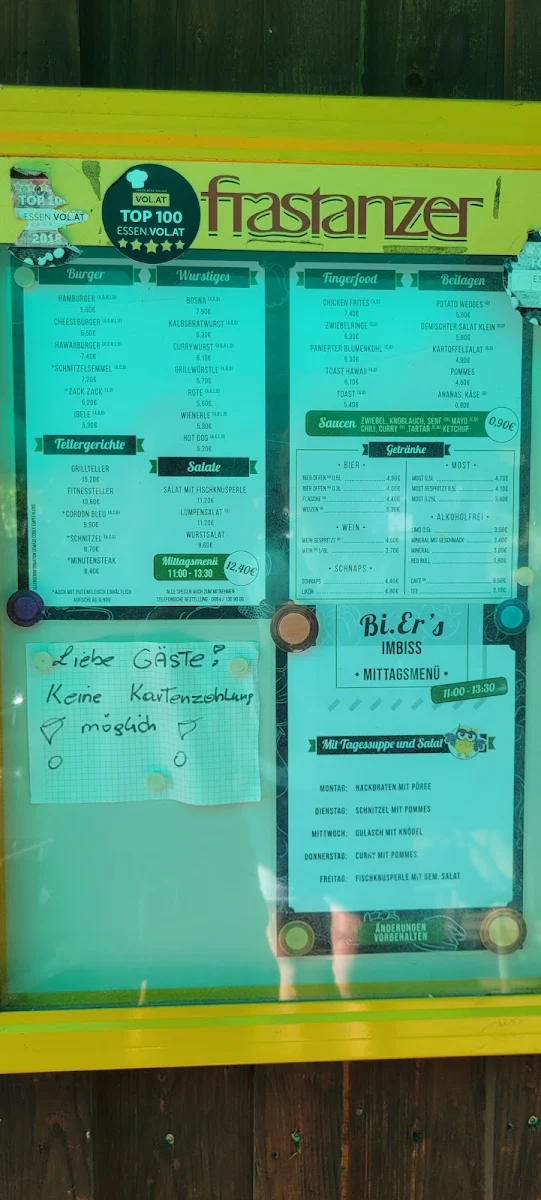 TOP 100
ESSEN.VOL.AT
2018
VOL.AT
TOP 100
ESSEN.VOL.AT
frastanzer
Burger
HAMBURGER
CHEESEBURGER
6,50€
HAWAIIBURGER
7,40€
*SCHNITZELSEMMEL
7,20€
*ZACK ZACK
6,20€
IBELE
5,90€
Tellergerichte
GRILLTELLER
15,20€
FITNESSTELLER
13,60€
*CORDON BLEU
9,90€
*SCHNITZEL
8,70€
*MINUTENSTEAK
8,40€
*AUCH MIT PUTENFLEISCH ERHÄLTLICH
AUFSCHLAG 0,90€
Wurstiges
BOSNA
7,50€
KALBSBRATWURST
6,30€
CURRYWURST
6,10€
GRILLWÜRSTLE
5,70€
ROTE
5,60€
WIENERLE
5,30€
HOT DOG
5,20€
Salate
SALAT MIT FISCHKNUSPERLE
11,20€
LUMPENSALAT
11,20€
WURSTSALAT
9,60€
Mittagsmenü
11:00 - 13:30
12,40€
ALLE SPEISEN AUCH ZUM MITNEHMEN
Fingerfood
CHICKEN FRITES
7,40€
ZWIEBELRINGE
6,30€
PANIERTER BLUMENKOHL
6,30€
TOAST HAWAII
6,10€
TOAST
5,40€
Beilagen
POTATO WEDGES
5,80€
GEMISCHTER SALAT KLEIN
5,80€
KARTOFFELSALAT
4,90€
POMMES
4,60€
ANANAS, KÄSE
0,80€
Saucen ZWIEBEL, KNOBLAUCH, SENF MAYO
CHILI, CURRY, TARTAR KETCHUP
0,90€
Getränke
• BIER •
BIER OFFEN 0,5L 4,90€
BIER OFFEN 0,3L 4,00€
FLASCHE 4,40€
WEIZEN
• WEIN •
WEIN GESPRITZT 4,00€
WEIN 1/8L 3,70€
• SCHNAPS •
SCHNAPS 4,40€
LIKÖR
• MOST •
MOST 0,5L 4,70€
MOST GESPRITZT 0,5L
MOST 0,25L
• ALKOHOLFREI •
LIMO 0,5L
MINERAL MIT GESCHMACK
MINERAL
RED BULL
CAFÉ
TEE
Bi.Er's
IMBISS
• MITTAGSMENÜ •
11:00 - 13:30
Mit Tagessuppe und Salat
MONTAG: HACKBRATEN MIT PÜREE
DIENSTAG: SCHNITZEL MIT POMMES
MITTWOCH: GULASCH MIT KNÖDEL
DONNERSTAG: CURRY MIT POMMES
FREITAG: FISCHKNUSPERLE MIT GEM. SALAT
ÄNDERUNGEN
VORBEHALTEN
Liebe GÄSTE!
Keine Kartenzahlung
möglich